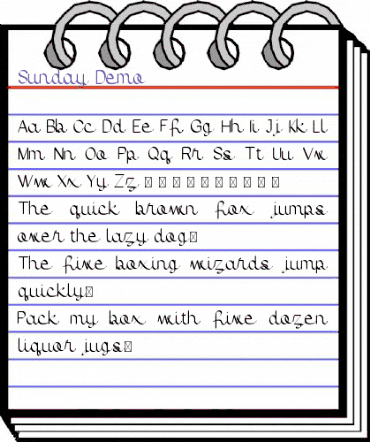 Sunday Demo
Aa Bb Cc Dd Ee Ff Gg Hh Ii Jj Kk Ll
Mm Nn Oo Pp Qq Rr Ss Tt Uu Vv
Ww Xx Yy Zz □ □ □ □ □ □ □ □ □ □
The quick brown fox jumps
over the lazy dog□
The five boxing wizards jump
quickly□
Pack my box with five dozen
liquor jugs□